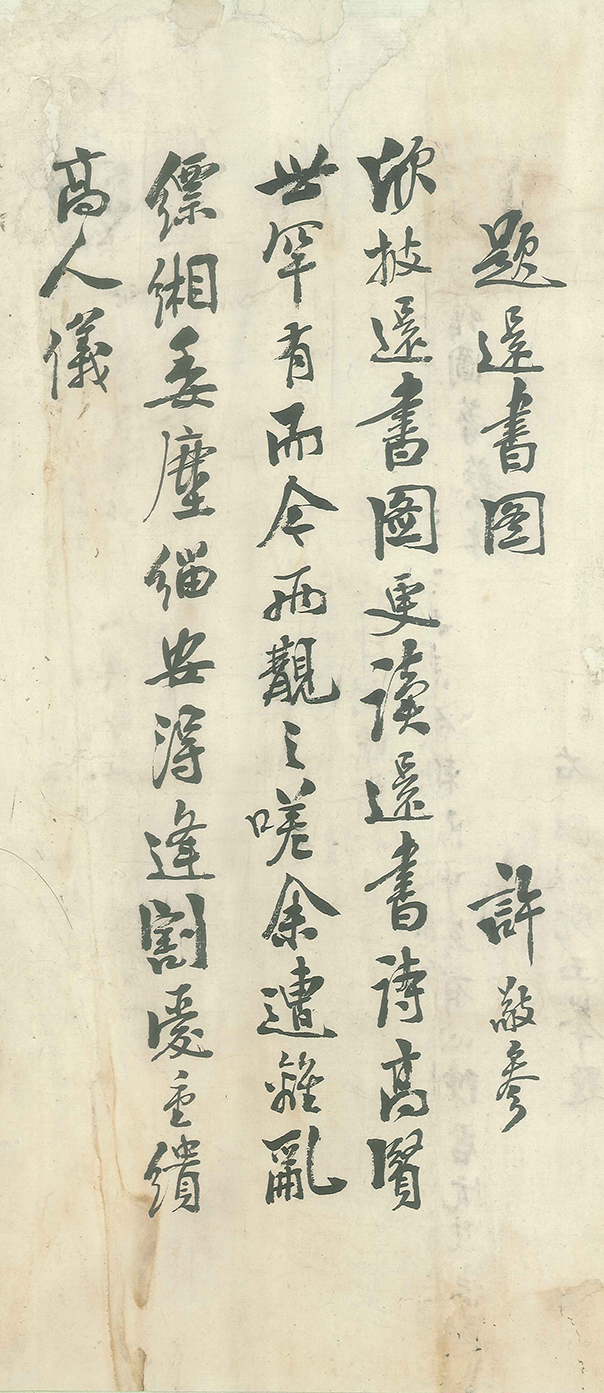 題還書图 許敬參
欣披還書圖更讀還書詩高賢
世罕有而今两觀之嗟余遭離亂
縹緗委塵緇安得逢割愛重繢
高人儀